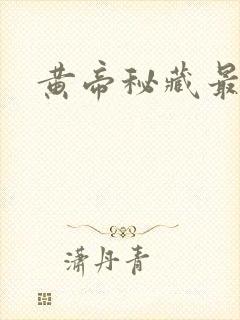 黄帝秘藏最
潇丹青